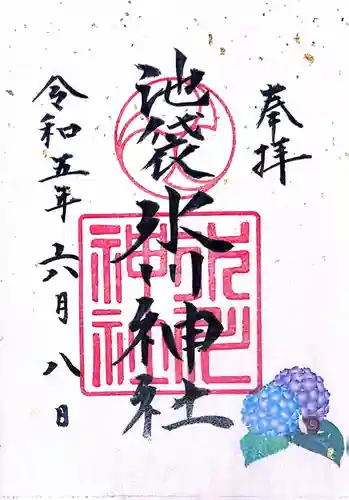 奉拝
池袋氷川神社
令和五年六月八日
氷川神社